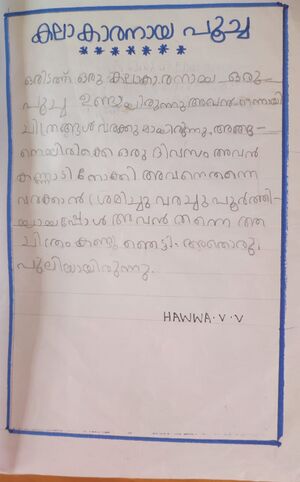 കലാകാരനായ പൂച്ച
ഒരിടത്ത് ഒരു കലാകാരനായ ഒരു
പൂച്ച ഉണ്ടായിരുന്നു. അവൻ നന്നായി
ചിത്രങ്ങൾ വരക്കുമായിരുന്നു. അങ്ങ-
നെയിരിക്കെ ഒരു ദിവസം അവൻ
കണ്ണാടി നോക്കി അവനെത്തന്നെ
വരക്കാൻ ശ്രമിച്ചു വരച്ചു പൂർത്തി-
യായപ്പോൾ അവൻ തന്നെ ആ
ചിത്രം കണ്ടു ഞെട്ടി. അതൊരു
പുലിയായിരുന്നു.
HAWWA.V.V